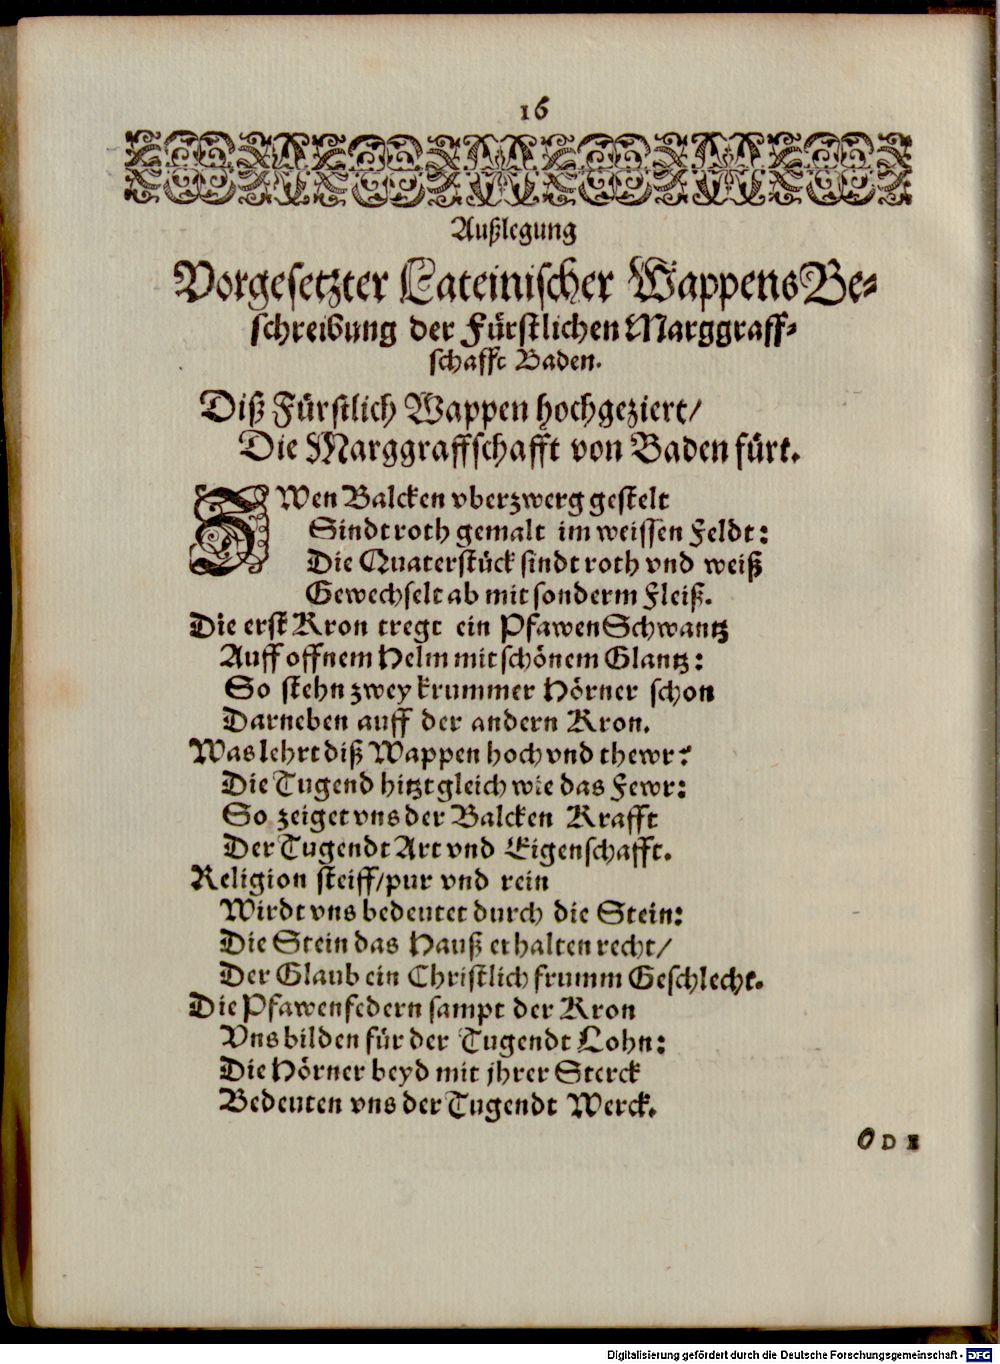 16
Außlegung
Vorgesetzter Lateinischer WappensBe-
schreibung der Fürstlichen Marggraff-
schafft Baden.
Diß Fürstlich Wappen hochgeziert/
Die Marggraffschafft von Baden fürt.
ZWen Balcken vberzwerg gestelt
Sindt roth gemalt im weissen Feldt:
Die Quaterstück sindt roth vnd weiß
Gewechselt ab mit sonderm Fleiß.
Die erst Kron tregt ein PfawenSchwantz
Auff offnem Helm mit schönem Glantz:
So stehn zwey krummer Hörner schon
Darneben auff der andern Kron.
Was lehrt diß Wappen hoch vnd thewr?
Die Tugend hitzt gleich wie das Fewr:
So zeiget vns der Balcken Krafft
Der Tugendt Art vnd Eigenschafft.
Religion steiff/pur vnd rein
Wirdt vns bedeutet durch die Stein:
Die Stein das Hauß erhalten recht/
Der Glaub ein Christlich frumm Geschlecht.
Die Pfawenfedern sampt der Kron
Vns bilden für der Tugendt Lohn:
Die Hörner beyd mit jhrer Sterck
Bedeuten vns der Tugendt Werck.
ODE
Digitalisierung gefördert durch die Deutsche Forschungsgemeinschaft - DFG